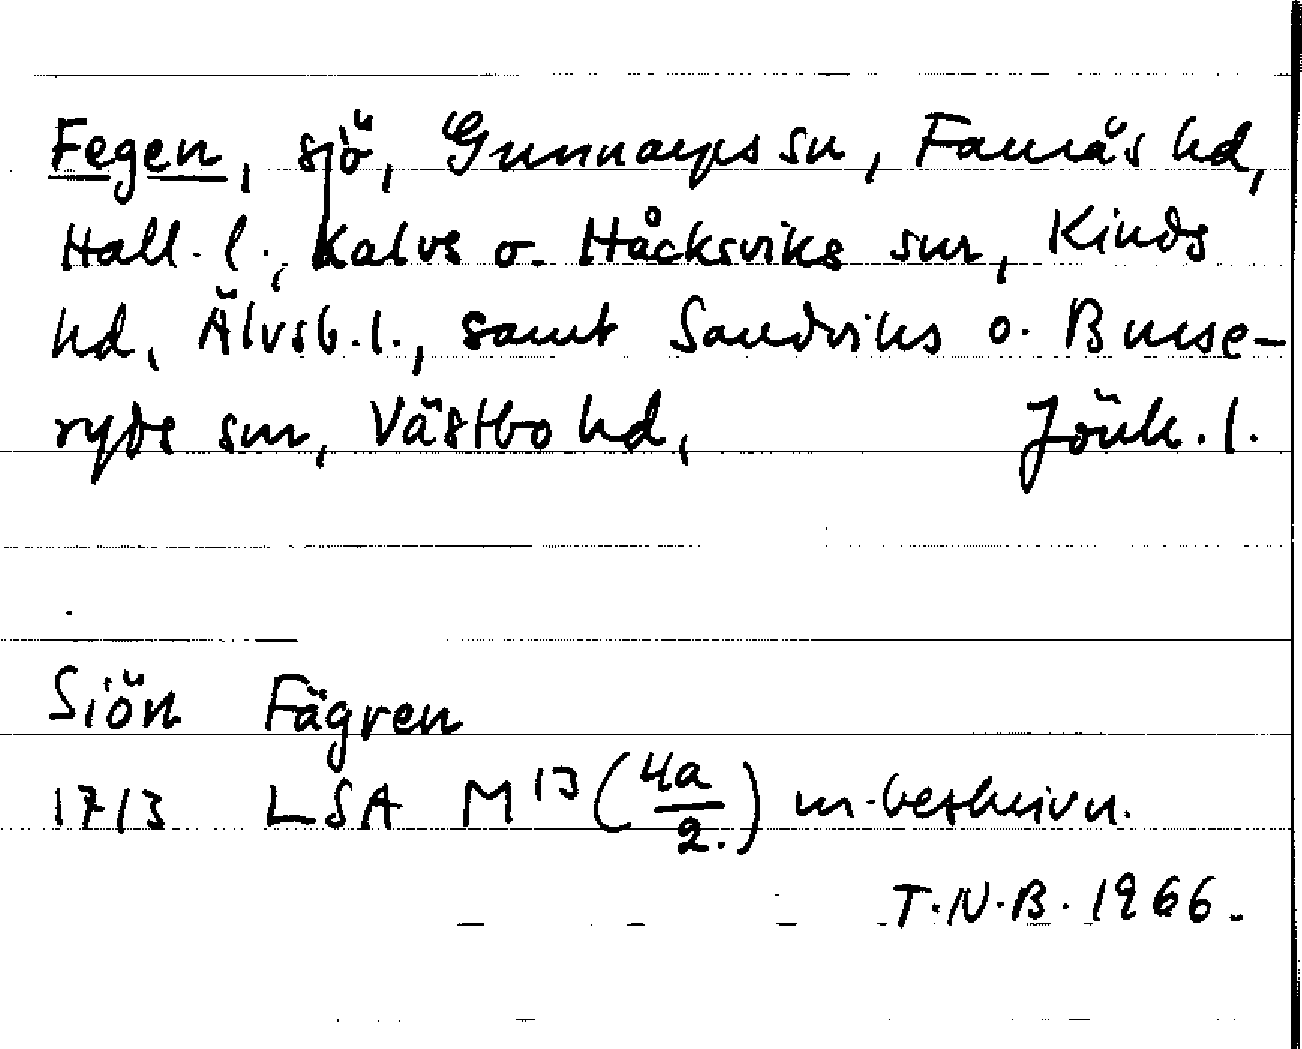 Fegen, sjö, Gunnarps sn, Faurås hd,
Hall. l., Kalvs o. Håcksviks snr, Kinds
hd, Älvsb. l., samt Sandviks o. Burse-
ryds snr, Västbo hd, Jönk. l.
Siön Fägren
1713 LSA M 13 (4a/2.) m. beskrivn.
T.N.B. 1966.